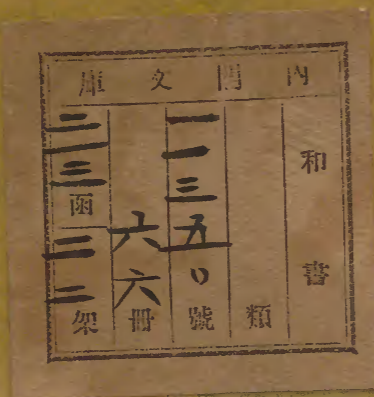 內閣文庫
和書
類
一一三五〇號
六六冊
二三函
二二架